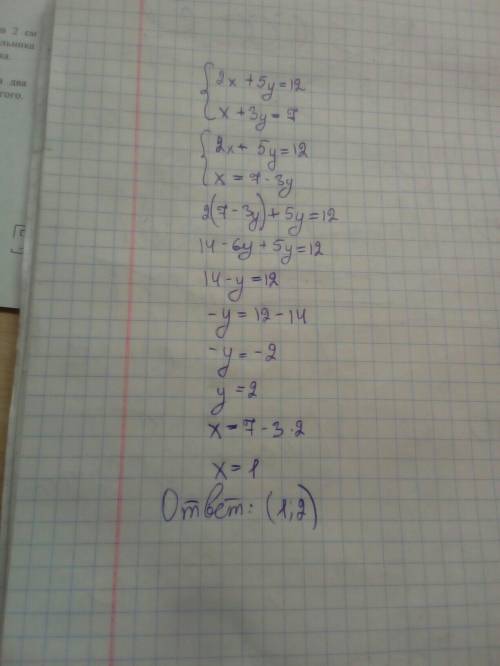 в 2 см
ка.
два
гого.
{2x + 5y = 12
{x + 3y = 7
{2x + 5y = 12
{x = 7 - 3y
2(7 - 3y) + 5y = 12
14 - 6y + 5y = 12
14 - y = 12
-y = 12 - 14
-y = -2
y = 2
x = 7 - 3 · 2
x = 1
Ответ: (1; 2)